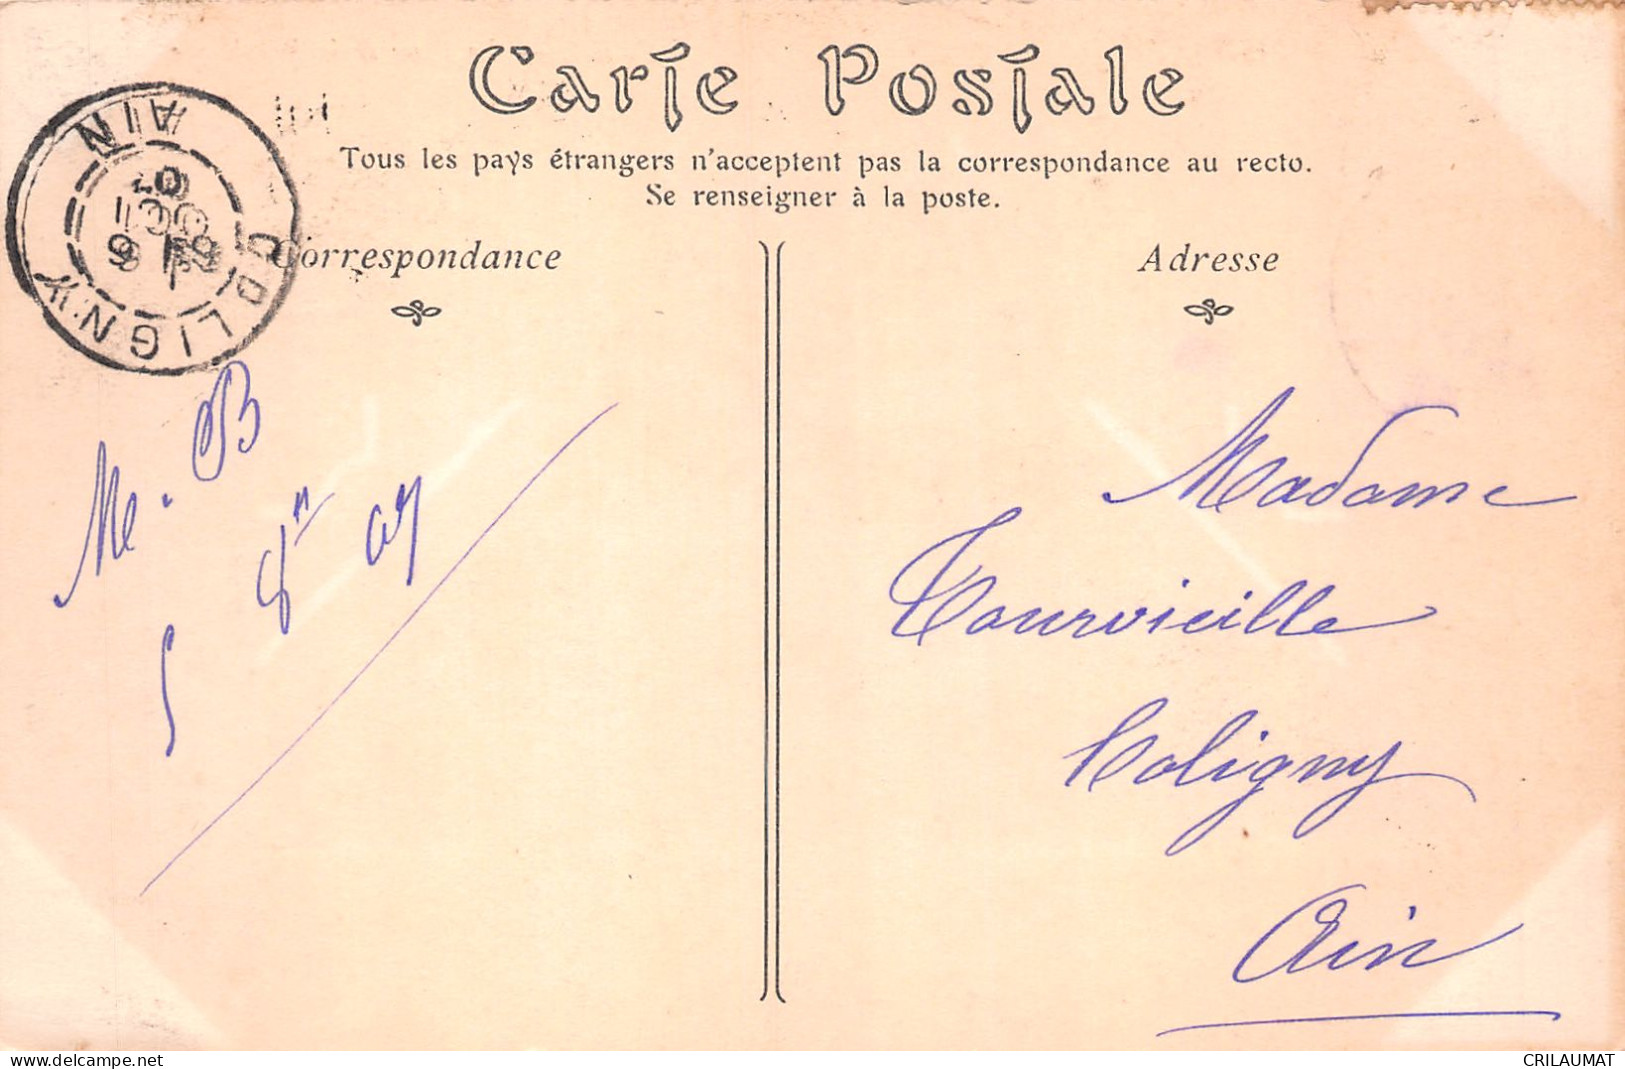 Carte Postale
Tous les pays étrangers n'acceptent pas la correspondance au recto.
Se renseigner à la poste.
COLIGNY
AIN
Correspondance
Adresse
Me. B
5 8re 07
Madame
Tourvieille
Coligny
Ain
www.delcampe.net
CRILAUMAT